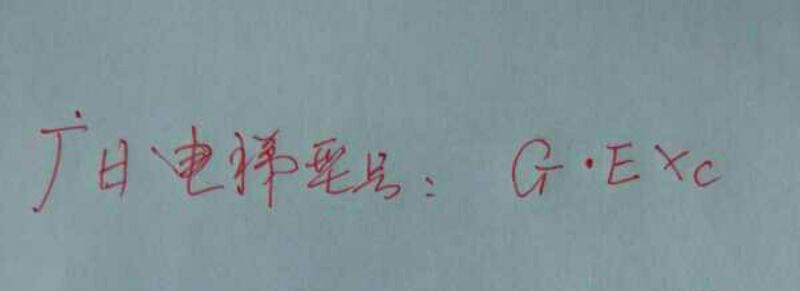 广日电梯型号：G·Exc